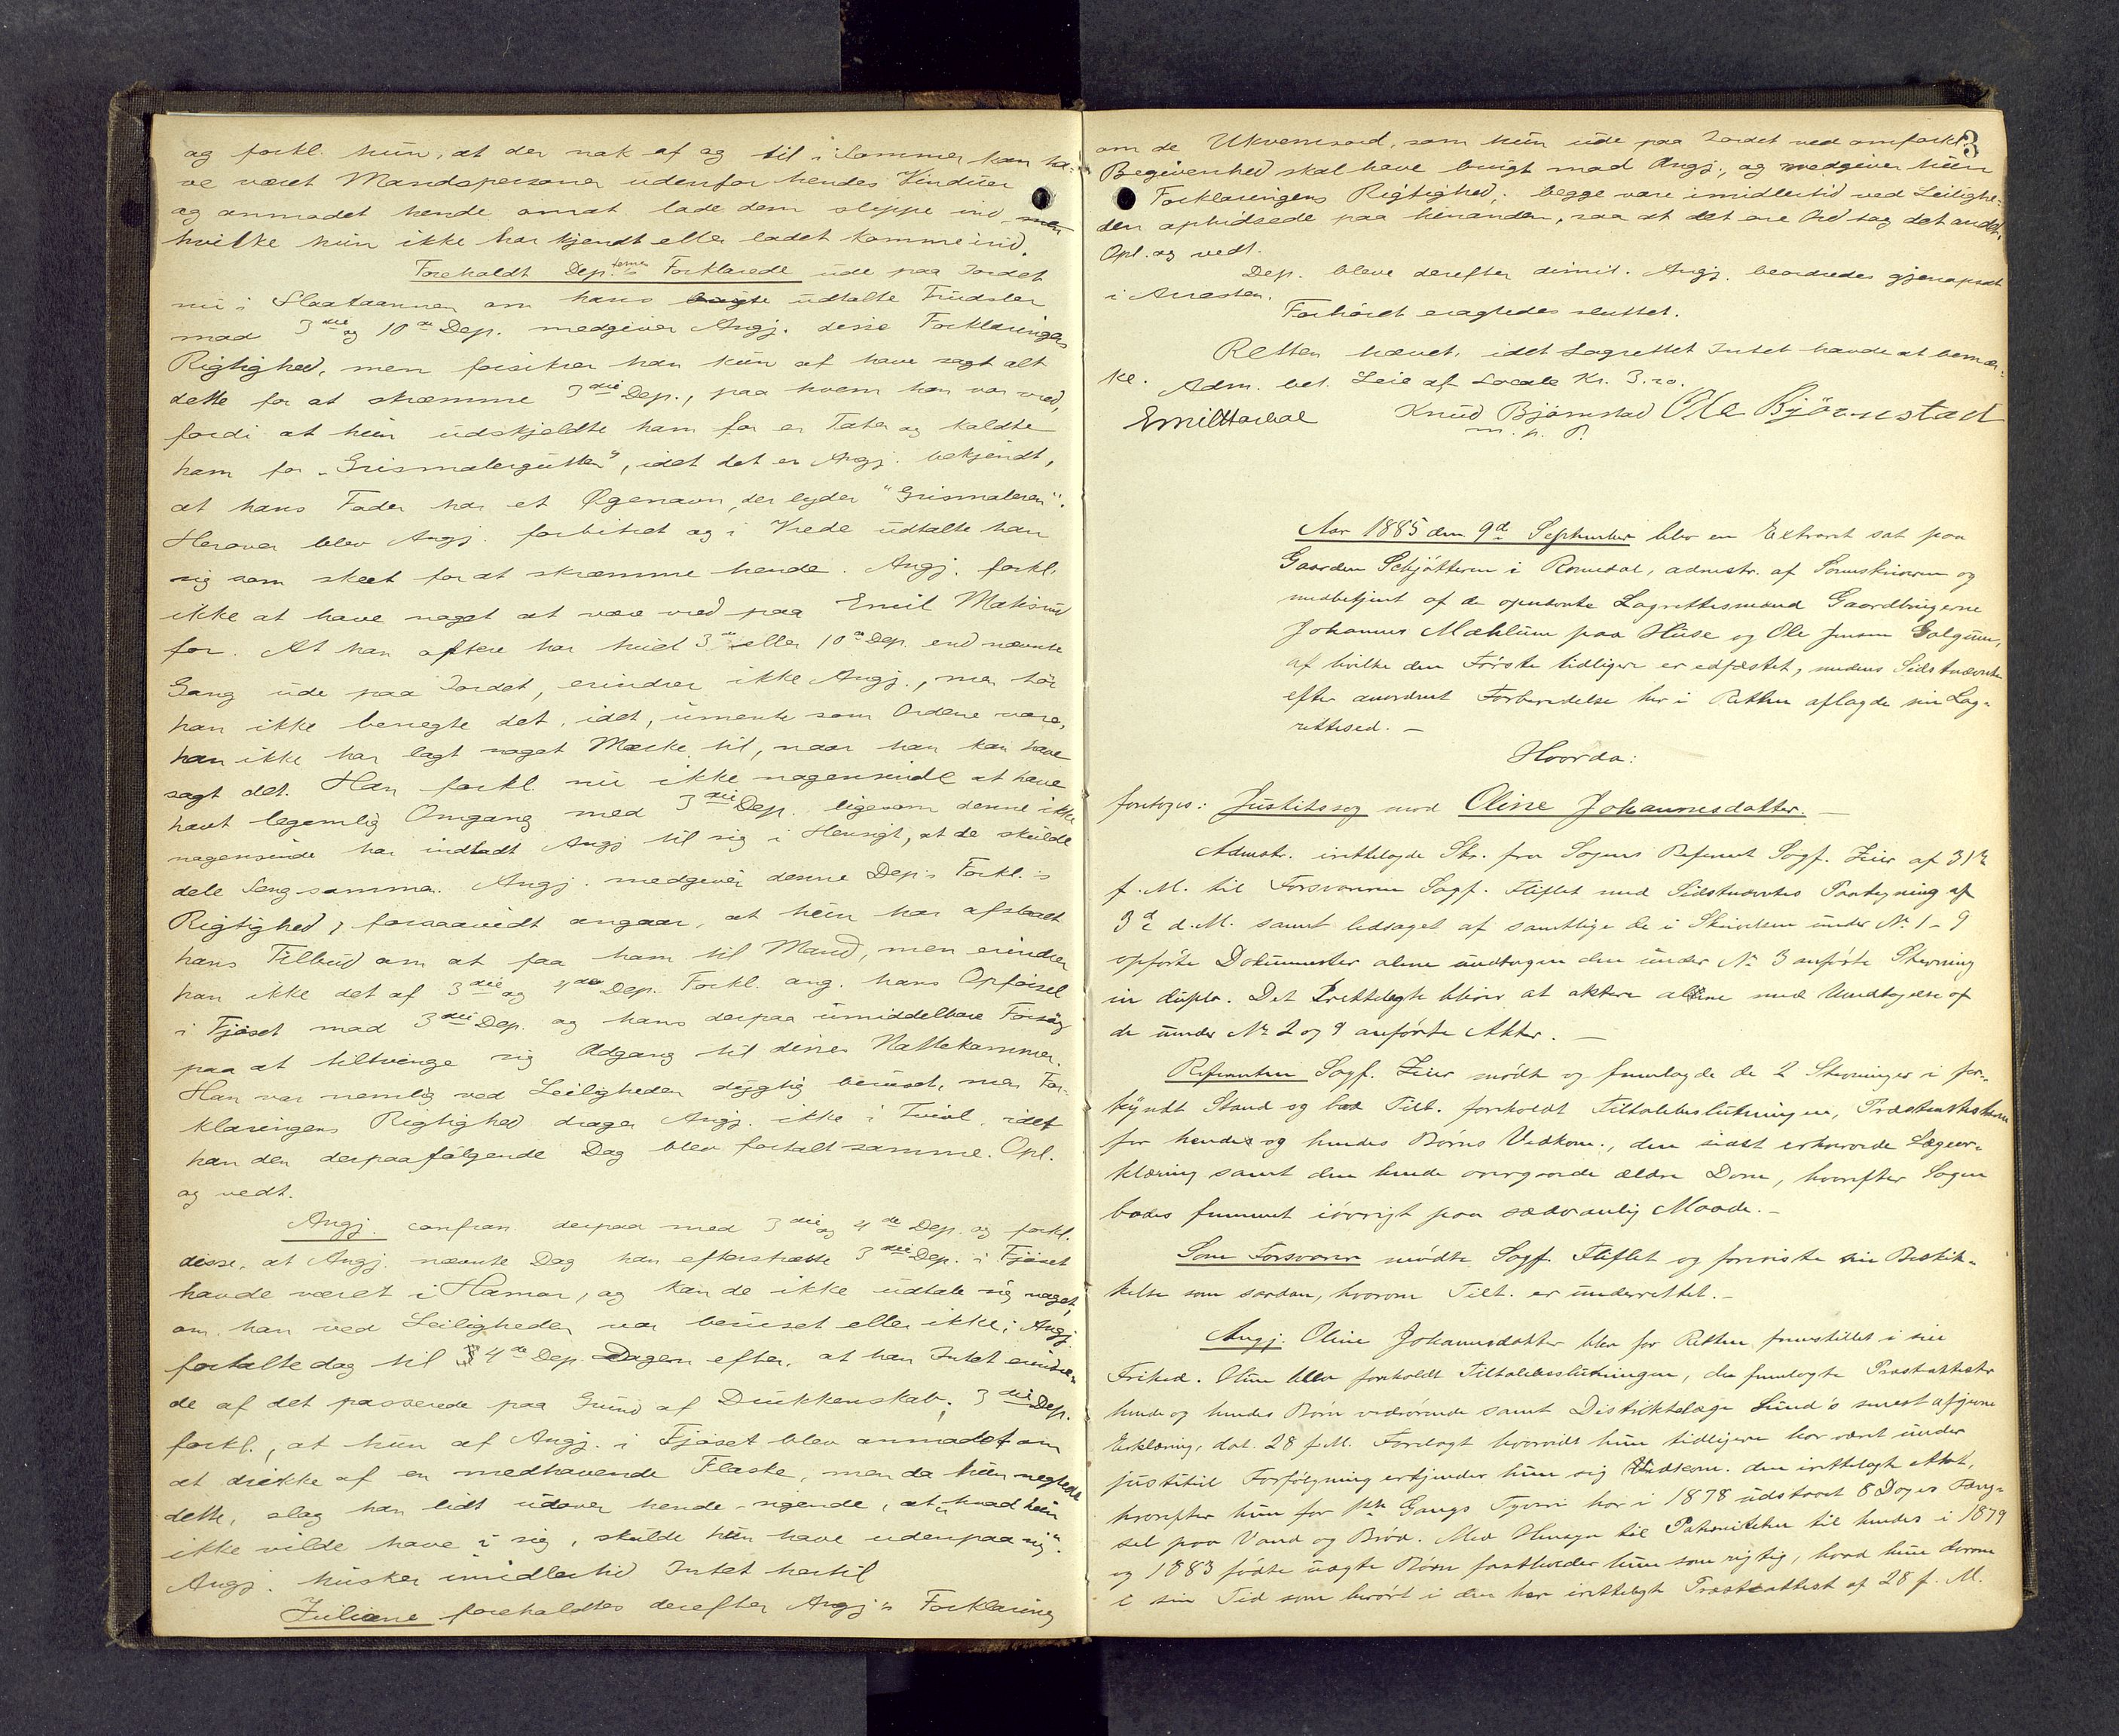 og forkl. hun, at der nok af og til i Sommer kan ha-
ve været Mandspersoner udenfor hendes Vinduer
og anmodet hende om at lade dem slippe ind men
hvilke hun ikke har kjendt eller ladet komme ind.
Foreholdt Dep.ternes Forklarede ude paa Jordet
nu i Slaataannen om hans brugte udtalte Trudsler
mod 3die og 10de Dep. medgiver Angj. disse Forklaringers
Rigtighed, men forsikrer han kun at have sagt alt
dette for at skræmme 3die Dep., paa hvem han var vred,
fordi at hun udskjeldte ham for en Tater og kaldte
ham for "Grismalergutten", idet det er Angj. bekjendt,
at hans Fader har et Øgenavn, der lyder "Grismaleren".
Herover blev Angj. forbitret og i Vrede udtalte han
sig som skeet for at skræmme hende. Angj. forkl.
ikke at have noget at være vred paa Emil Mathisrud
for. At han oftere har truet 3die eller 10de Dep. end nævnte
Gang ude paa Jordet, erindrer ikke Angj., men tør
han ikke benegte det, idet, umente som Ordene vare,
han ikke har lagt noget Mærke til, naar han kan have
sagt det. Han forkl. nu ikke nogensinde at have
havt legemlig Omgang med 3die Dep. ligesom denne ikke
nogensinde har indladt Angj. til sig i Hensigt, at de skulde
dele Seng sammen. Angj. medgiver denne Dep's Forkl.'s
Rigtighed, forsaavidt angaar, at hun har afslaaet
hans Tilbud om at faa ham til Mand, men erindrer
han ikke det af 3die og 4de Dep. Forkl. ang. hans Opførsel
i Fjøset mod 3die Dep. og hans derpaa umiddelbare Forsøg
paa at tiltvinge sig Adgang til dennes Nattekammer.
Han var nemlig ved Leiligheden dygtig beruset, men For-
klaringens Rigtighed drager Angj. ikke i Tvivl, idet
han den derpaafølgende Dag blev fortalt samme. Opl.
og vedt.
Angj. confron. derpaa med 3die og 4de Dep. og forkl.
disse, at Angj. nævnte Dag han efterstræbte 3die Dep. i Fjøset
havde været i Hamar, og kan de ikke udtale sig noget,
om han ved Leiligheden var beruset eller ikke; Angj.
fortalte dog til 4de Dep. Dagen efter, at han Intet erindre-
de af det passerede paa Grund af Drukkenskab. 3die Dep.
forkl., at hun af Angj. i Fjøset blev anmodet om
at drikke af en medhavende Flaske, men da hun negtede
dette, slog han lidt udover hende - sigende, at "hvad hun
ikke vilde have i sig, skulde hun have udenpaa sig".
Angj. husker imidlertid Intet hertil
Juliane foreholdtes derefter Angj's Forklaring
3
om de Ukvemsord, som hun ude paa Jordet ved omforkl.
Begivenhed skal have brugt mod Angj., og medgiver hun
Forklaringens Rigtighed; begge vare imidlertid ved Leilighe-
den ophidsede paa hinanden, saa at det ene Ord tog det andet.
Opl. og vedt.
Dep. bleve derefter dimit. Angj. beordredes gjenopsat
i Arresten.
Forhøret eragtedes sluttet.
Retten hævet, idet Lagrettet Intet havde at bemær-
ke. Adm. bet. Leie af Locale Kr. 3.20.
Knud Bjørnstad Ole Bjørnstad
m. p. P.
Aar 1885 den 9de September blev en Extraret sat paa
Gaarden Schjøtteren i Romedal, admstr. af Sorenskriveren og
medbetjent af de opnævnte Lagrettesmænd Gaardbrugerne
Johannes Mæhlum paa Huse og Ole Jensen Galgum,
af hvilke den Første tidligere er edfæstet, medens Sidstnævnte
efter anordnet Forberedelse her i Retten aflagde sin Lag-
rettesed. —
Hvorda:
foretoges: Justitssag mod Oline Johannesdatter. —
Admstr. irettelagde Skr. fra Sagens Referent Sagf. Zeier af 31te
f. M. til Forsvareren Sagf. Fliflet med Sidstnævntes Paategning af
3de d. M. samt ledsaget af samtlige de i Skrivelsen under No 1-9
opførte Dokumenter alene undtagen den under No 3 anførte Stevning
in duplo. Det Irettelagte bliver at aktere alene med Undtagelse af
de under No 2 og 9 anførte Akter. —
Referenten Sagf. Zeier mødte og fremlagde de 2 Stevninger i for-
kyndt Stand og bad Tilt. foreholdt Tiltalebeslutningen, Præsteattesterne
for hendes og hendes Børns Vedkom., den sidst erhvervede Lægeer-
klæring samt den hende overgaaede ældre Dom, hvorefter Sagen
bades fremmet iøvrigt paa sædvanlig Maade. —
Som Forsvarer mødte Sagf. Fliflet og foreviste sin Beskik-
kelse som saadan, hvorom Tilt. er underrettet. —
Angj. Oline Johannesdatter blev for Retten fremstillet i sin
Frihed. Oline blev foreholdt Tiltalebeslutningen, de fremlagte Præsteattester
hende og hendes Børn vedrørende samt Distriktslæge Lund's senest afgivne
Erklæring, dat. 28 f. M. Forelagt hvorvidt hun tidligere har været under
justitiel Forfølgning erkjender hun sig Vedkom. den irettelagte Attest,
hvorefter hun for 1ste Gangs Tyveri har i 1878 udstaaet 8 Dages Fæng-
sel paa Vand og Brød. Med Hensyn til Paterniteten til hendes i 1879
og 1883 fødte uægte Børn fastholder hun som rigtig, hvad hun derom
i sin Tid som berørt i den her irettelagte Præsteattest af 28 f. M.